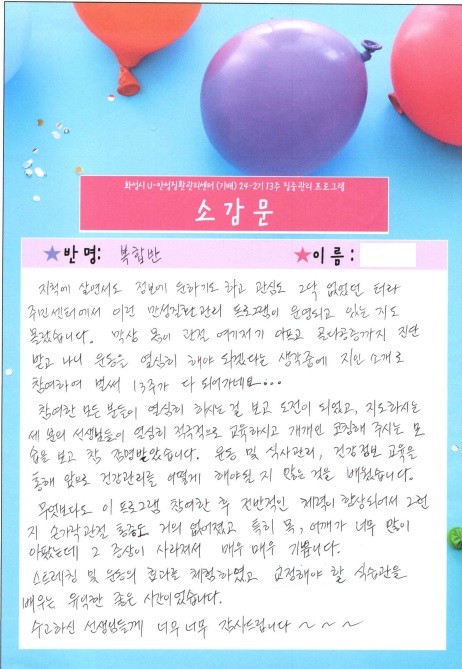 화성시 U-만성질환관리센터 (기배) 24-2기 13주 집중관리 프로그램
소감문
★반 명: 복합반 ★이 름:
지척에 살면서도 정보에 둔하기도 하고 관심도 그닥 없었던 터라
주민센터에서 이런 만성질환관리 프로그램이 운영되고 있는 지도
몰랐습니다. 막상 몸이 관절 여기저기 아프고 골다공증까지 진단
받고 나니 운동을 열심히 해야 되겠다는 생각중에 지인 소개로
참여하여 벌써 13주가 다 되어가네요...
참여한 모든 분들이 열심히 하시는걸 보고 도전이 되었고, 지도하시는
세 분의 선생님들이 열심히 적극적으로 교육하시고 개개인 코칭해 주시는 모
습을 보고 참 감명받았습니다. 운동 및 식사관리, 건강정보 교육을
통해 앞으로 건강관리를 어떻게 해야된 지 많은 것을 배웠습니다.
무엇보다도 이 프로그램 참여한 후 전반적인 체력이 향상되어서 그런
지 손가락관절 통증도 거의 없어졌고 특히 목, 어깨가 너무 많이
아팠는데 그 증상이 사라져서 매우 매우 기쁩니다.
스트레칭 및 운동의 효과를 체험하였고 교정해야 할 식습관을
배우는 유익한 좋은 시간이었습니다.
수고하신 선생님들께 너무 너무 감사드립니다 ~ ~ ~